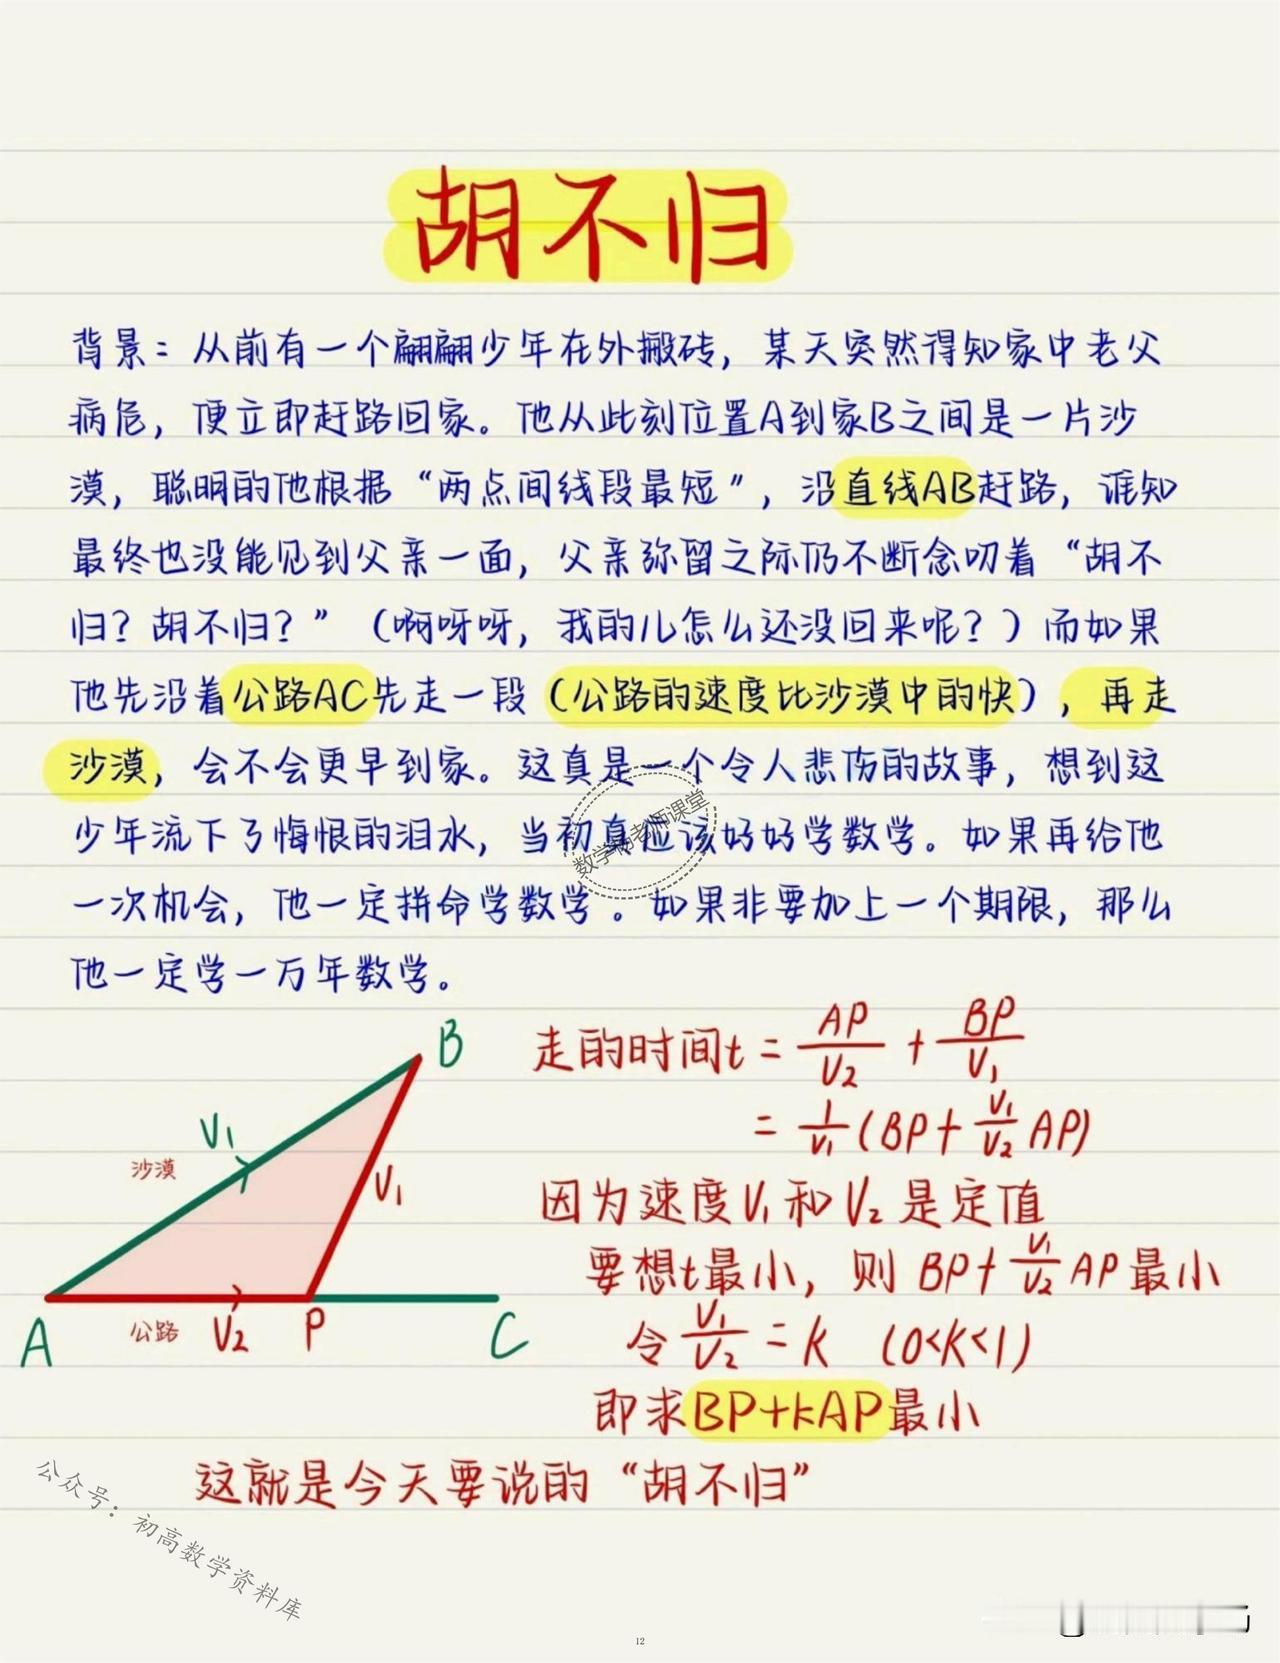 胡不归
背景：从前有一个翩翩少年在外搬砖，某天突然得知家中老父
病危，便立即赶路回家。他从此刻位置A到家B之间是一片沙
漠，聪明的他根据“两点间线段最短”，沿直线AB赶路，谁知
最终也没能见到父亲一面，父亲弥留之际仍不断念叨着“胡不
归？胡不归？”（啊呀呀，我的儿怎么还没回来呢？）而如果
他先沿着公路AC先走一段（公路的速度比沙漠中的快），再走
沙漠，会不会更早到家。这真是一个令人悲伤的故事，想到这
少年流下了悔恨的泪水，当初真应该好好学数学。如果再给他
一次机会，他一定拼命学数学。如果非要加上一个期限，那么
他一定学一万年数学。
B
V₁
沙漠
V₁
A
公路
V₂
P
C
走的时间t = AP/V₂ + BP/V₁
= 1/V₁(BP+V₁/V₂AP)
因为速度V₁和V₂是定值
要想t最小，则BP+V₁/V₂AP最小
令V₁/V₂=K (0<K<1)
即求BP+kAP最小
这就是今天要说的“胡不归”
公众号：初高数学资料库
12